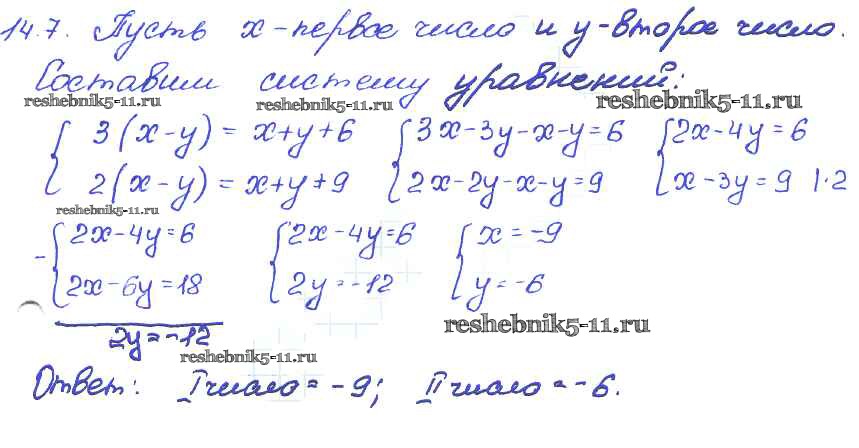 14.7. Пусть x - первое число и y - второе число.
Составим систему уравнений:
reshebnik5-11.ru reshebnik5-11.ru reshebnik5-11.ru
{ 3(x-y) = x+y+6 { 3x-3y-x-y=6 { 2x-4y=6
2(x-y) = x+y+9 2x-2y-x-y=9 x-3y=9 |·2
reshebnik5-11.ru
- { 2x-4y=6 { 2x-4y=6 { x=-9
2x-6y=18 2y=-12 y=-6
2y=-12 reshebnik5-11.ru
reshebnik5-11.ru
Ответ: I число = -9; II число = -6.